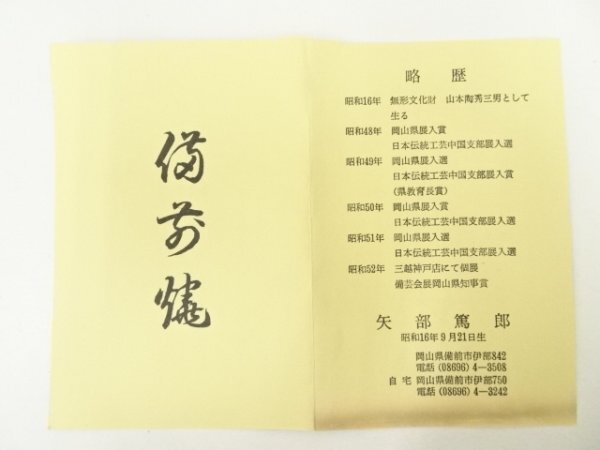 備前燒
略歴
昭和16年 無形文化財 山本陶秀三男として
生る
昭和48年 岡山県展入賞
日本伝統工芸中国支部展入選
昭和49年 岡山県展入選
日本伝統工芸中国支部展入賞
(県教育長賞)
昭和50年 岡山県展入賞
日本伝統工芸中国支部展入選
昭和51年 岡山県展入選
日本伝統工芸中国支部展入選
昭和52年 三越神戸店にて個展
備芸会展岡山県知事賞
矢部篤郎
昭和16年9月21日生
岡山県備前市伊部842
電話(08696)4-3508
自宅 岡山県備前市伊部750
電話(08696)4-3242